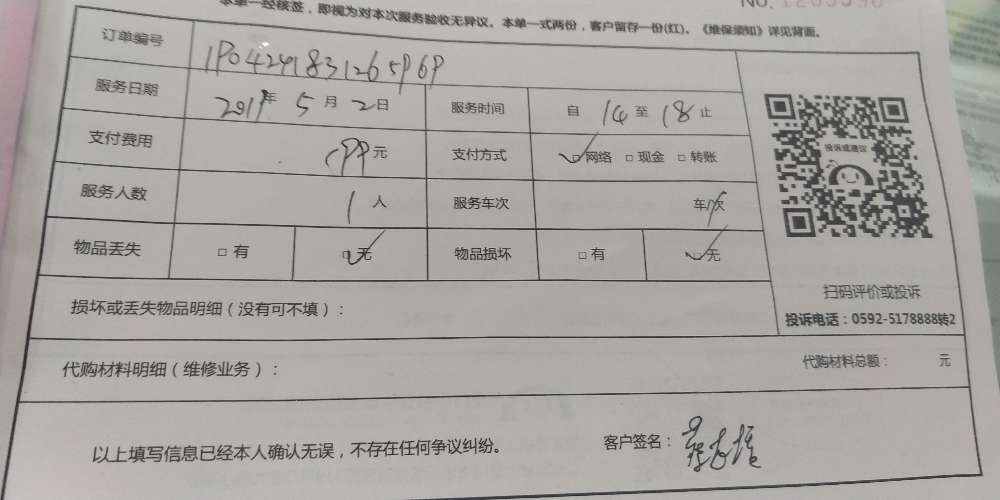 本单一经核签，即视为对本次服务验收无异议。本单一式两份，客户留存一份(红)。《维保须知》详见背面。
订单编号
服务日期 2019年 5 月 2 日 服务时间 自 14 至 18 止
支付费用 元 支付方式 ☑网络 □现金 □转账
服务人数 1 人 服务车次 车/次
物品丢失 □有 ☑无 物品损坏 □有 ☑无
投诉或建议
扫码评价或投诉
投诉电话：0592-5178888转2
损坏或丢失物品明细（没有可不填）：
代购材料明细（维修业务）： 代购材料总额： 元
以上填写信息已经本人确认无误，不存在任何争议纠纷。 客户签名：